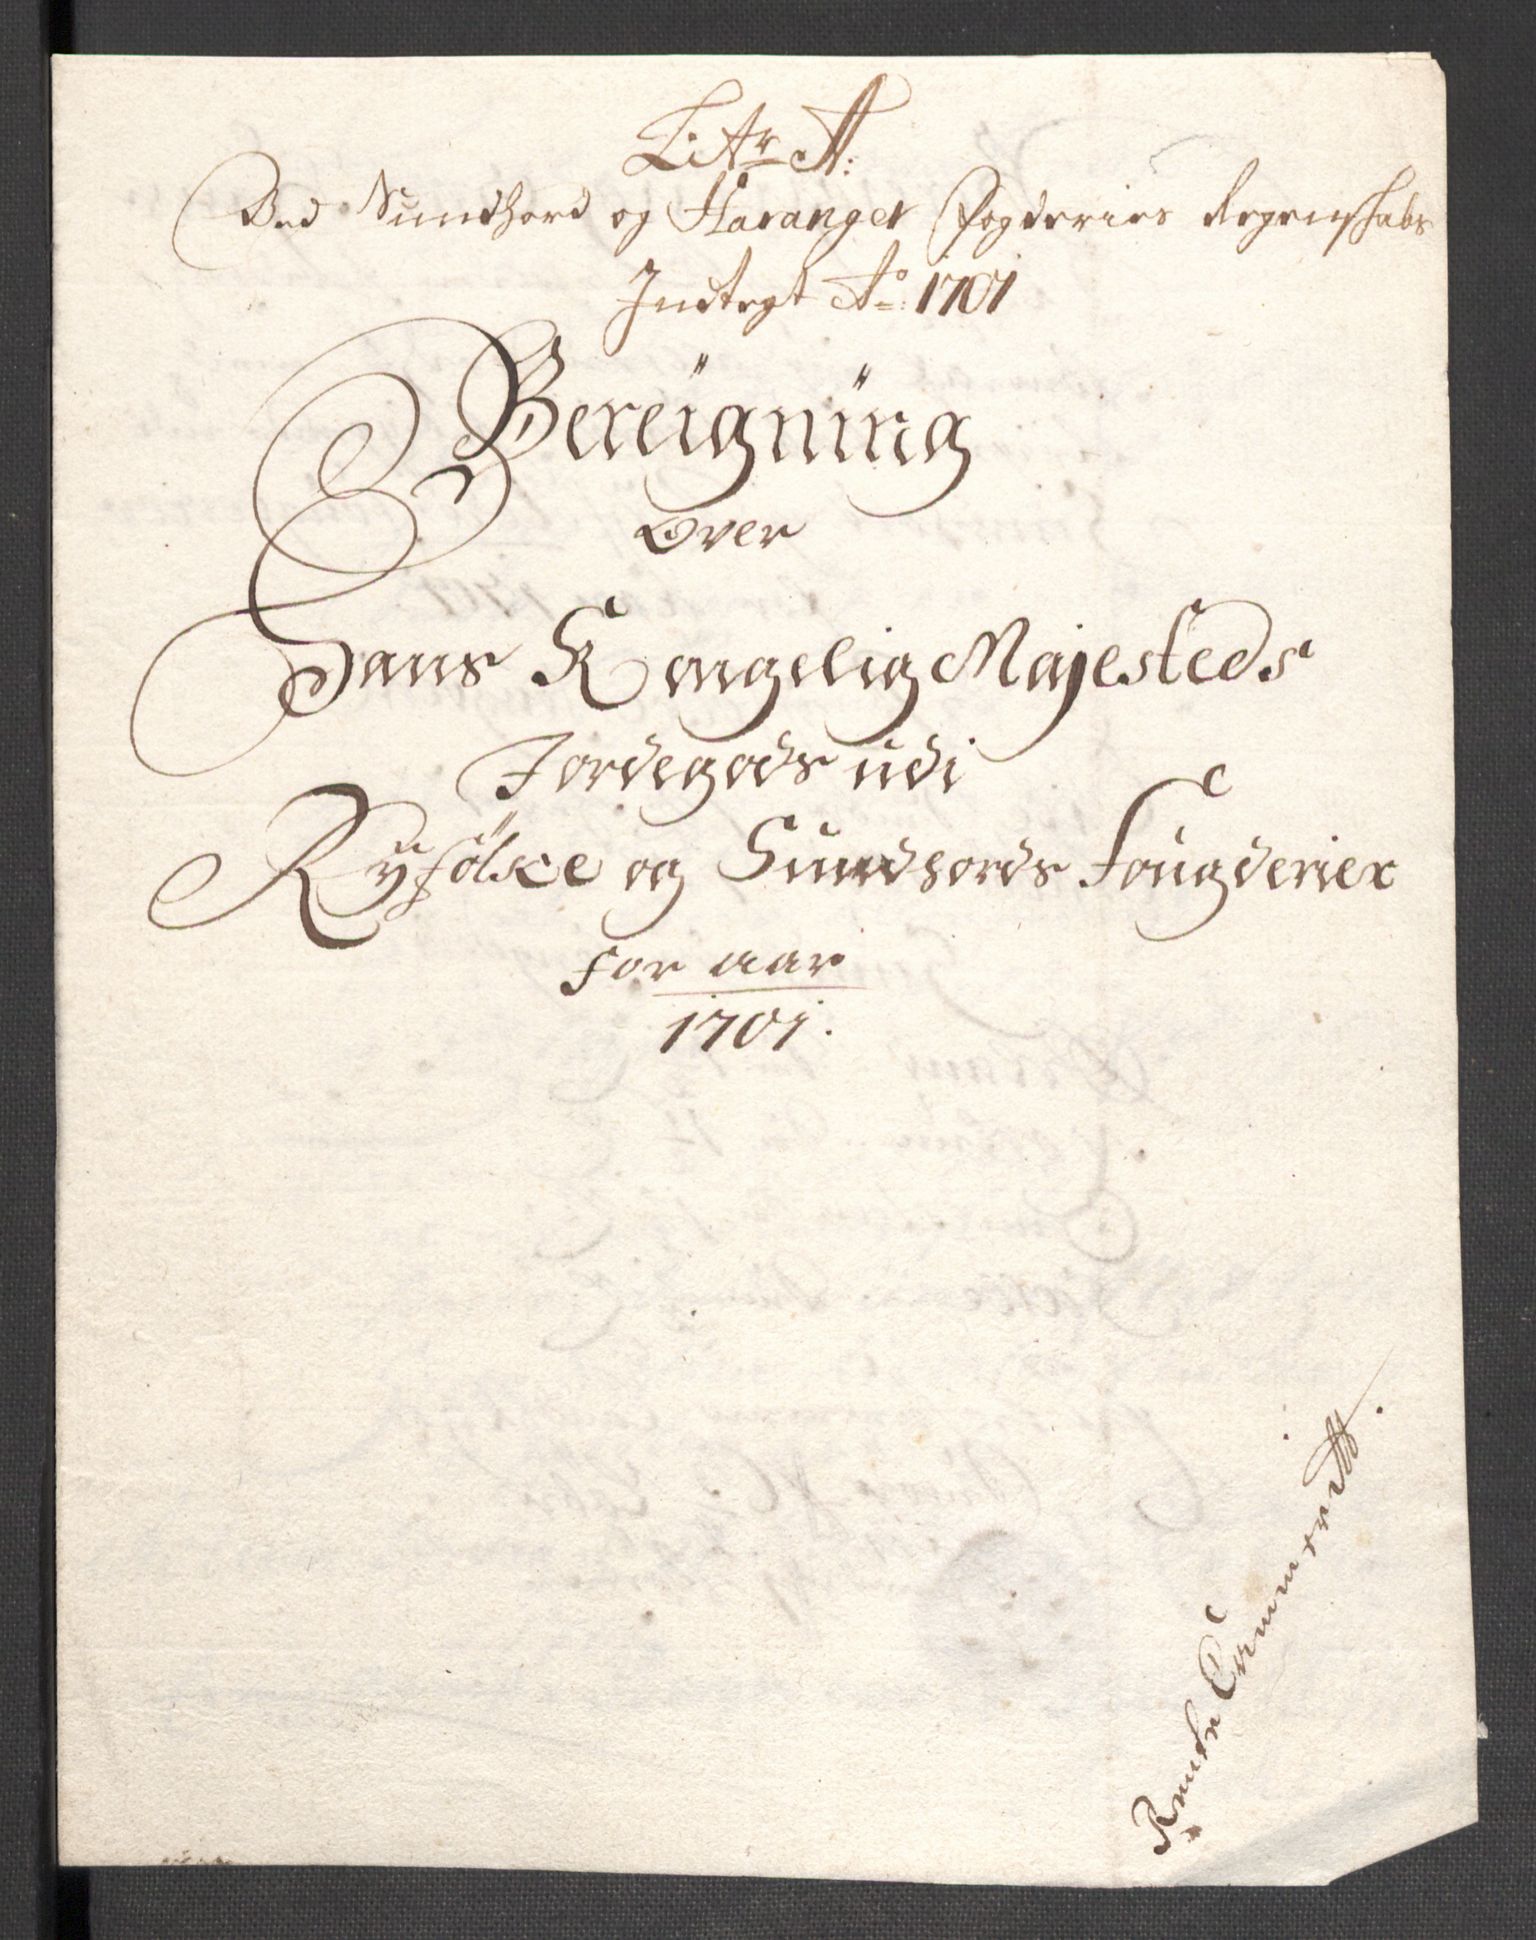 Litr A:
Ved Sundhord og Haranger Fogderies Regenskabs
Indtegt Ao: 1701
Bereigning
over
Hans Kongelig Majesteds
Jordegods udi
Ryfölke og Sundhords Fougderier
for aar
1701.
Rente Cammerett.